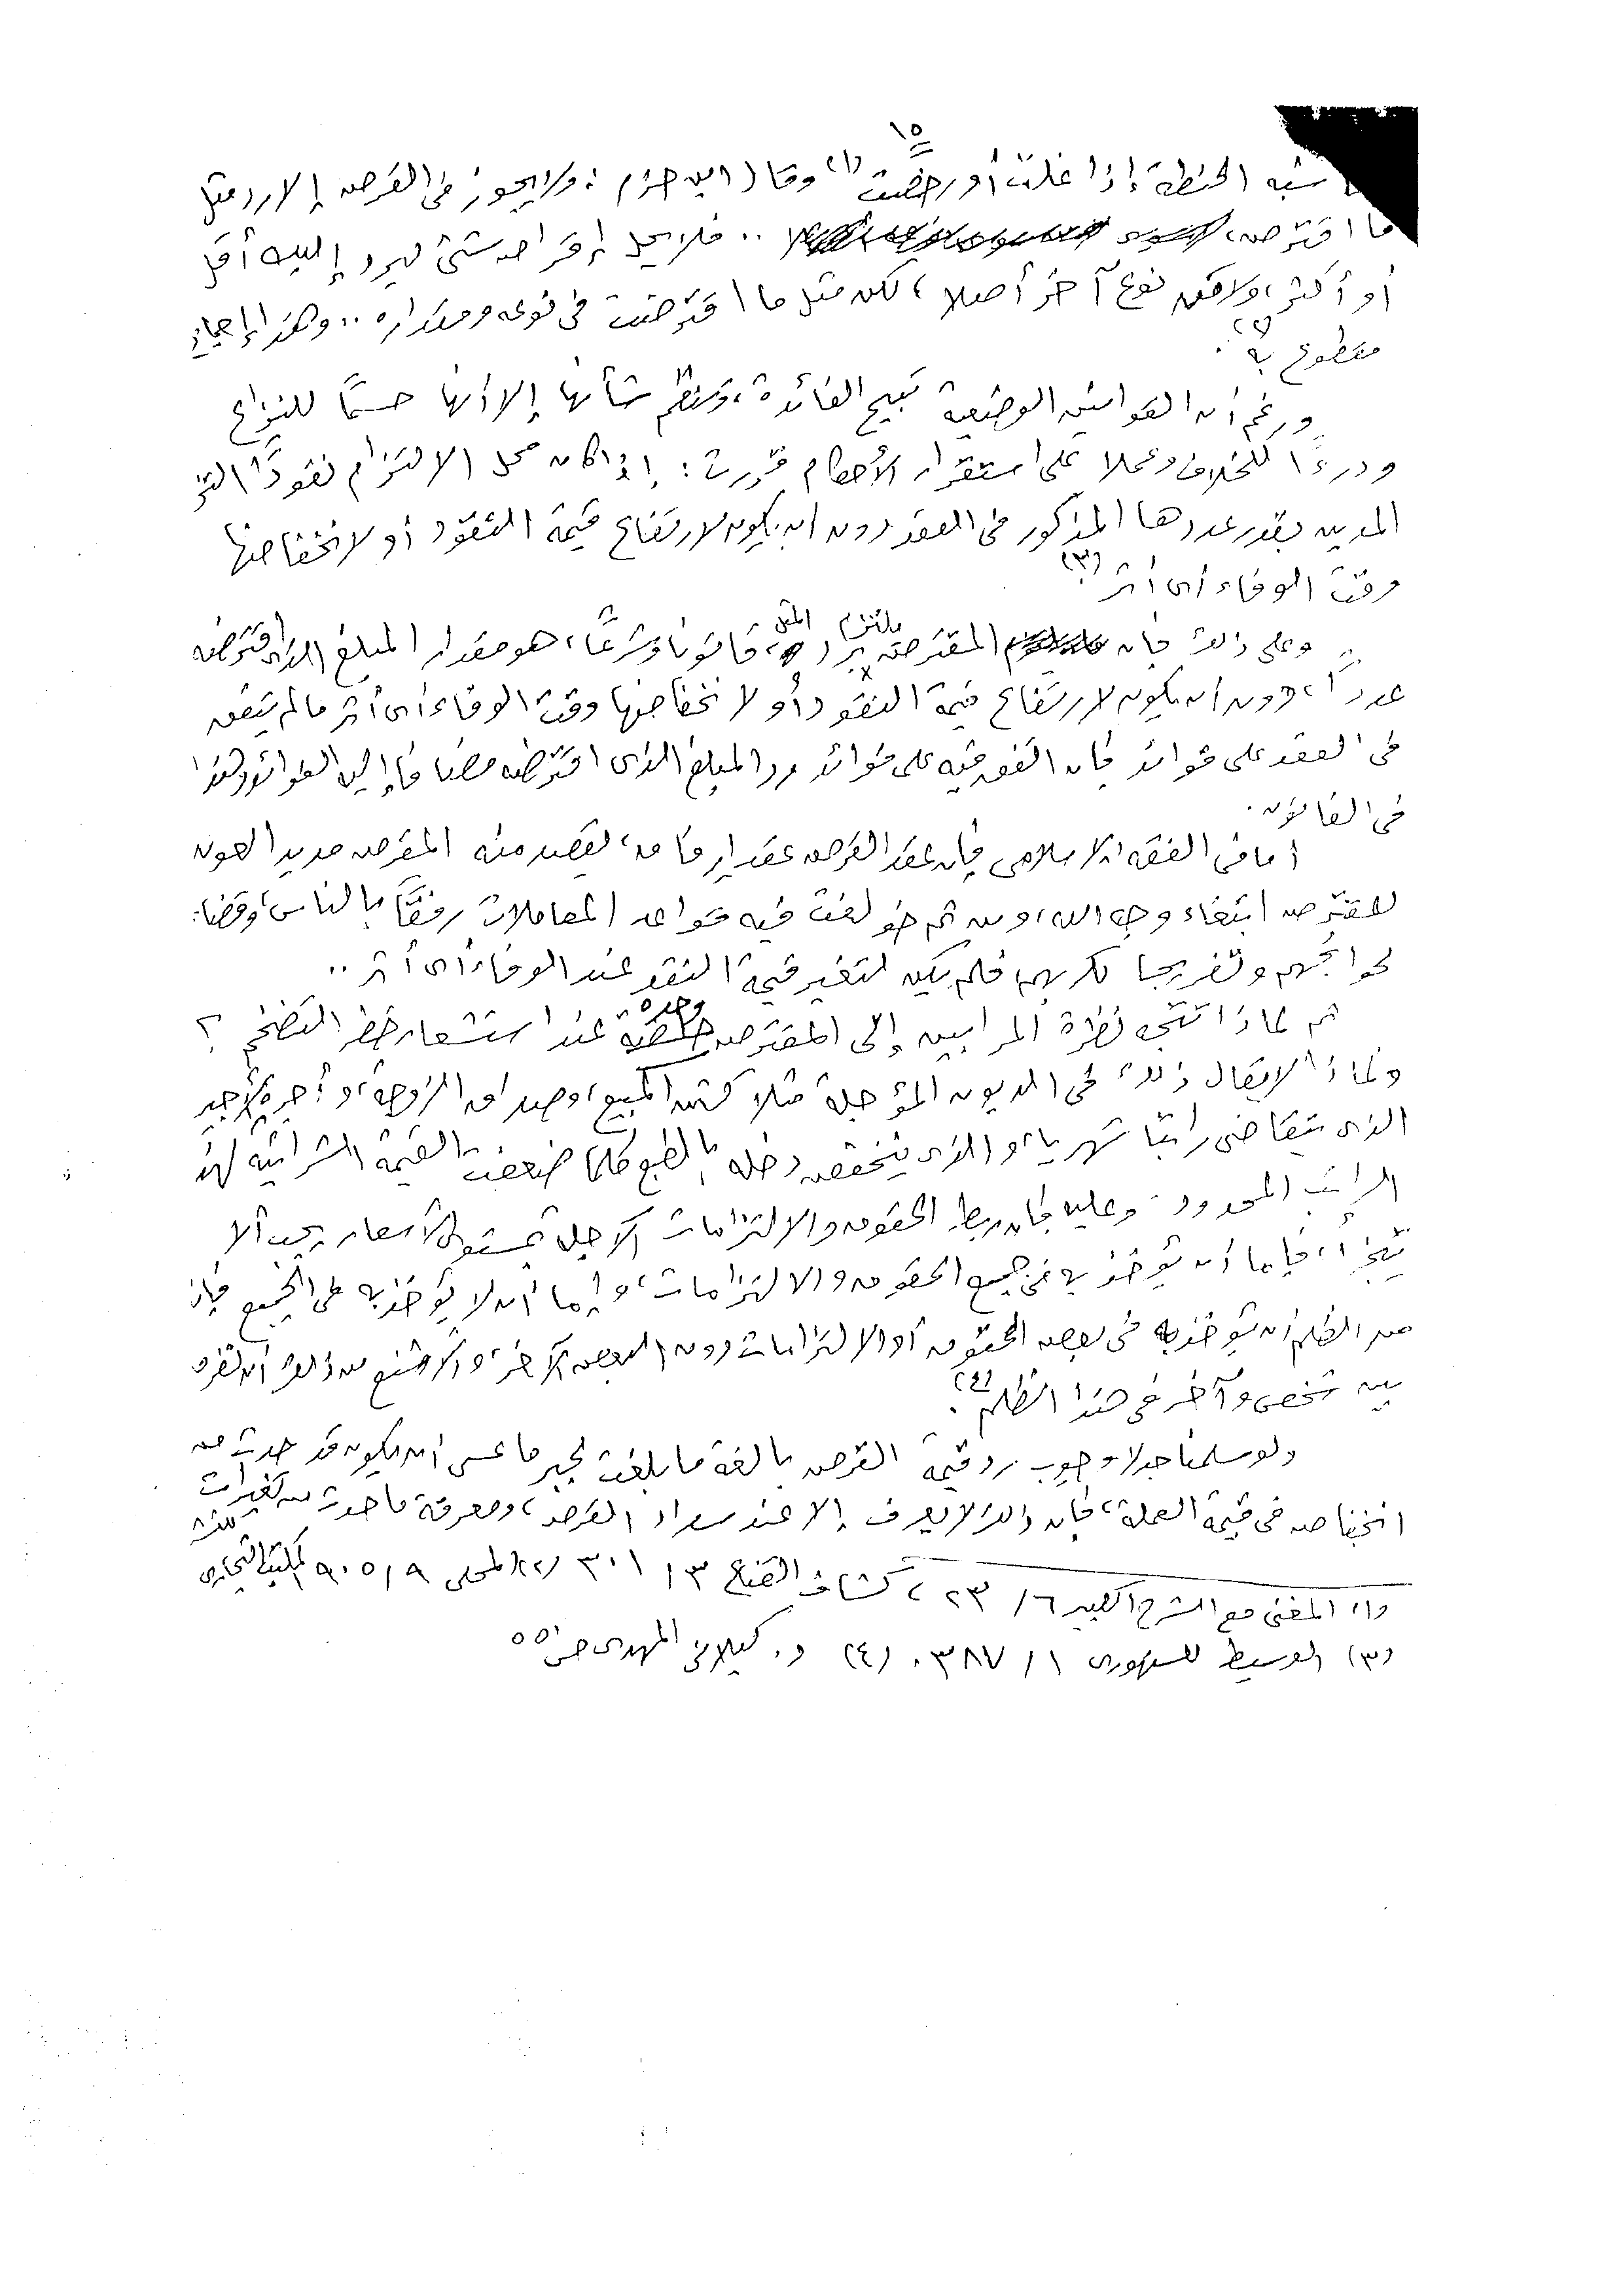 ١٥
شبه الحنطة إذا غلت أو رخصت (١)، وقال ابن حزم: ولا يجوز في القرض إلا رد مثل
ما اقترض، .. فلا يحل إقراض شئ ليرد إليك أقل
أو أكثر، ولا من نوع آخر أصلا، لكن مثل ما اقترضت في نوعه ومقداره .. وهذا إجماع
مقطوع به (٢).
ورغم أن القوانين الوضعية تبيح الفائدة، وتنظم شأنها إلا أنها حسمًا للنزاع
ودرءًا للخلاف وعملا على استقرار الأحكام قررت: إذا كان محل الالتزام نقودًا التزم
المدين بقدر عددها المذكور في العقد دون أن يكون لارتفاع قيمة النقود أو لانخفاضها
وقت الوفاء أى أثر (٣).
وعلى ذلك فإن المقترض يلتزم برد المثل، قانونا وشرعًا، هو مقدار المبلغ الذى اقترضه
عددًا، دون أن يكون لارتفاع قيمة النقود أو لانخفاضها وقت الوفاء أى أثر ما لم يتفق
في العقد على فوائد فإن اتفق فيه على فوائد رد المبلغ الذى اقترضه مضافا إليه الفوائد وهذا
في القانون.
أما في الفقه الإسلامى فإن عقد القرض عقد إرفاق، يقصد منه المقرض مد يد العون
للمقترض ابتغاء وجه الله، ومن ثم خولفت فيه قواعد المعاملات رفقًا بالناس، وقضاء
لحوائجهم وتفريجا لكربهم فلم يكن لتغير قيمة النقد عند الوفاء أى أثر ..
ثم لماذا تتجه نظرة المرابين إلى المقترض وحده عند استشعار خطر التضخم ؟
ولماذا لا يقال ذلك في الديون المؤجلة مثلا كثمن المبيع، وصداق الزوجة، وأجرة الأجير
الذى يتقاضى راتبًا شهريا، والذى ينخفض دخله بالطبع كلما ضعفت القيمة الشرائية لهذا
الراتب المحدود. وعليه فإن ربط الحقوق والالتزامات الآجلة بمستوى الأسعار يجب ألا
يتجزأ، فإما أن يؤخذ به في جميع الحقوق والالتزامات، وإما أن لا يؤخذ به في الجميع فإن
من الظلم أن يؤخذ به في بعض الحقوق أو الالتزامات دون البعض الآخر، والأشنع من ذلك أن نفرق
بين شخص وآخر في هذا الظلم (٤).
ولو سلمنا جدلا وجوب رد قيمة القرض بالغة ما بلغت لجبر ما عسى أن يكون قد حدث من
انخفاض في قيمة العملة، فإن ذلك لا يعرف إلا عند سداد القرض، ومعرفة ما حدث من تغيرات
(١) المغنى مع الشرح الكبير ٦ / ٢٣، كشاف القناع ٣ / ٣٠١ (٢) المحلى ٩ / ٩٠٥
(٣) الوسيط للسنهورى ١ / ٣٨٧. (٤) د. كيلانى المهدى ص ٥٥